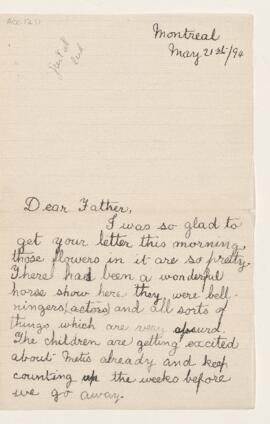 Montreal
May 21st/94
Dear Father,
I was so glad to
get your letter this morning
those flowers in it are so pretty.
There had been a wonderful
horse show here they were bell-
ringers (actors) and all sorts of
things which are very absurd.
The children are getting excited
about Metis already and keep
counting up the weeks before
we go away.